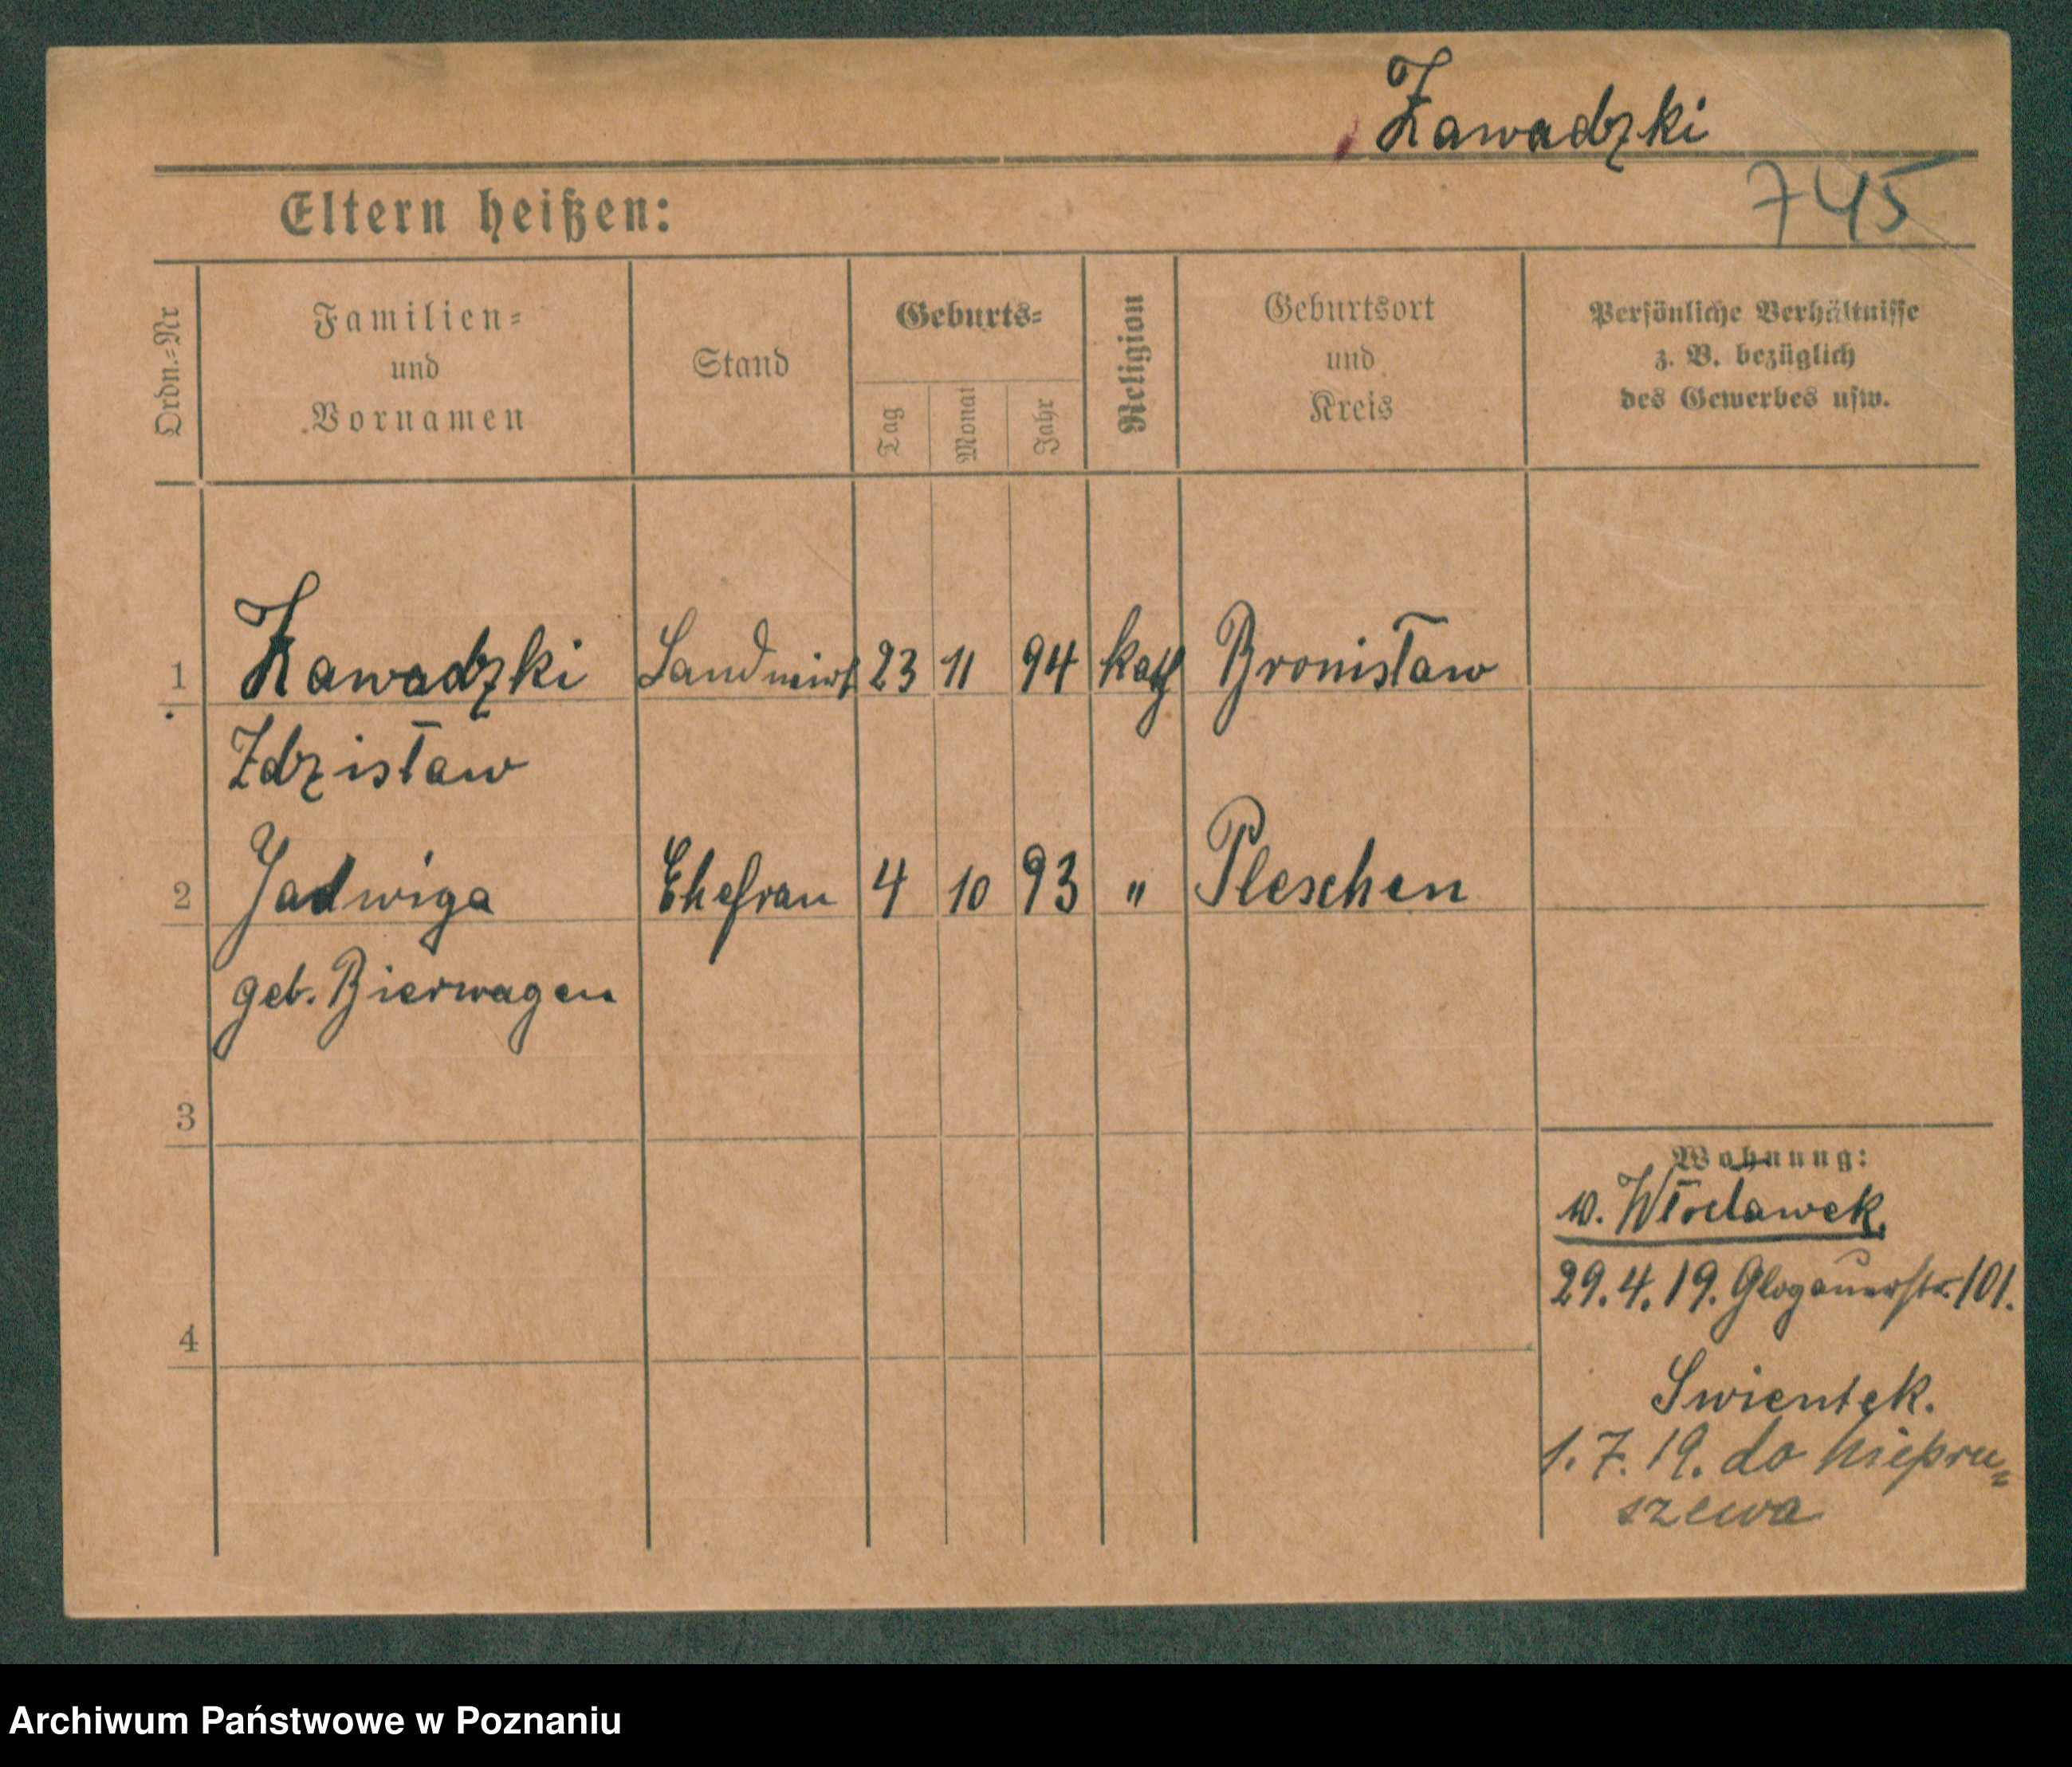 Zawadzki
745
Eltern heißen:
Ordn.=Nr
Familien=
und
Vornamen
Stand
Geburts=
Tag
Monat
Jahr
Religion
Geburtsort
und
Kreis
Persönliche Verhältnisse
z. B. bezüglich
des Gewerbes usw.
1 Zawadzki Landwirt 23 11 94 kath Bronisław
Zdzisław
2 Jadwiga Ehefrau 4 10 93 " Pleschen
geb. Bierwagen
3
Wohnung:
w. Włocławek.
29.4.19. Glogauerstr. 101.
4
Swientek.
1.7.19. do Niepru=
szewa
Archiwum Państwowe w Poznaniu